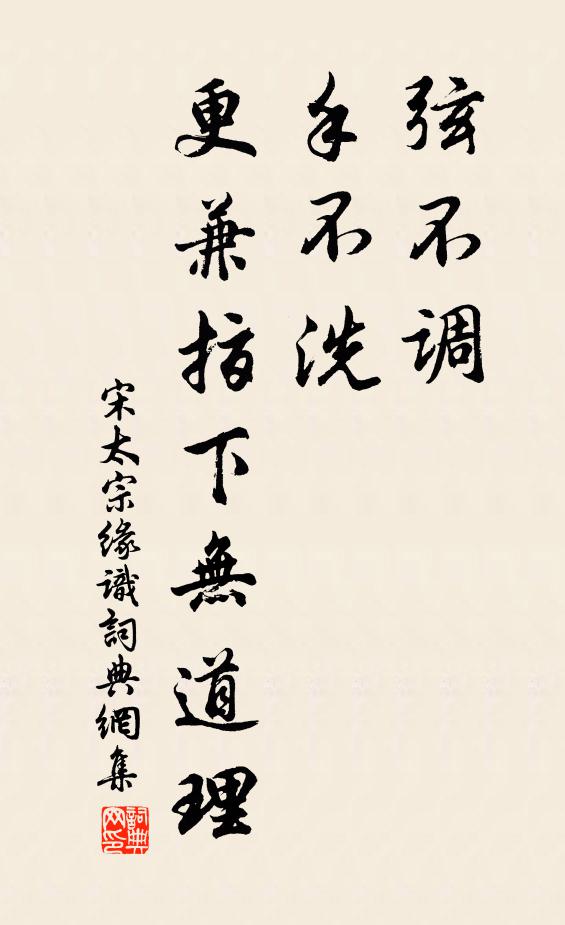 弦不调
手不洗
更兼指下無道理
宋太宗缘識詞典網集
詞典网印